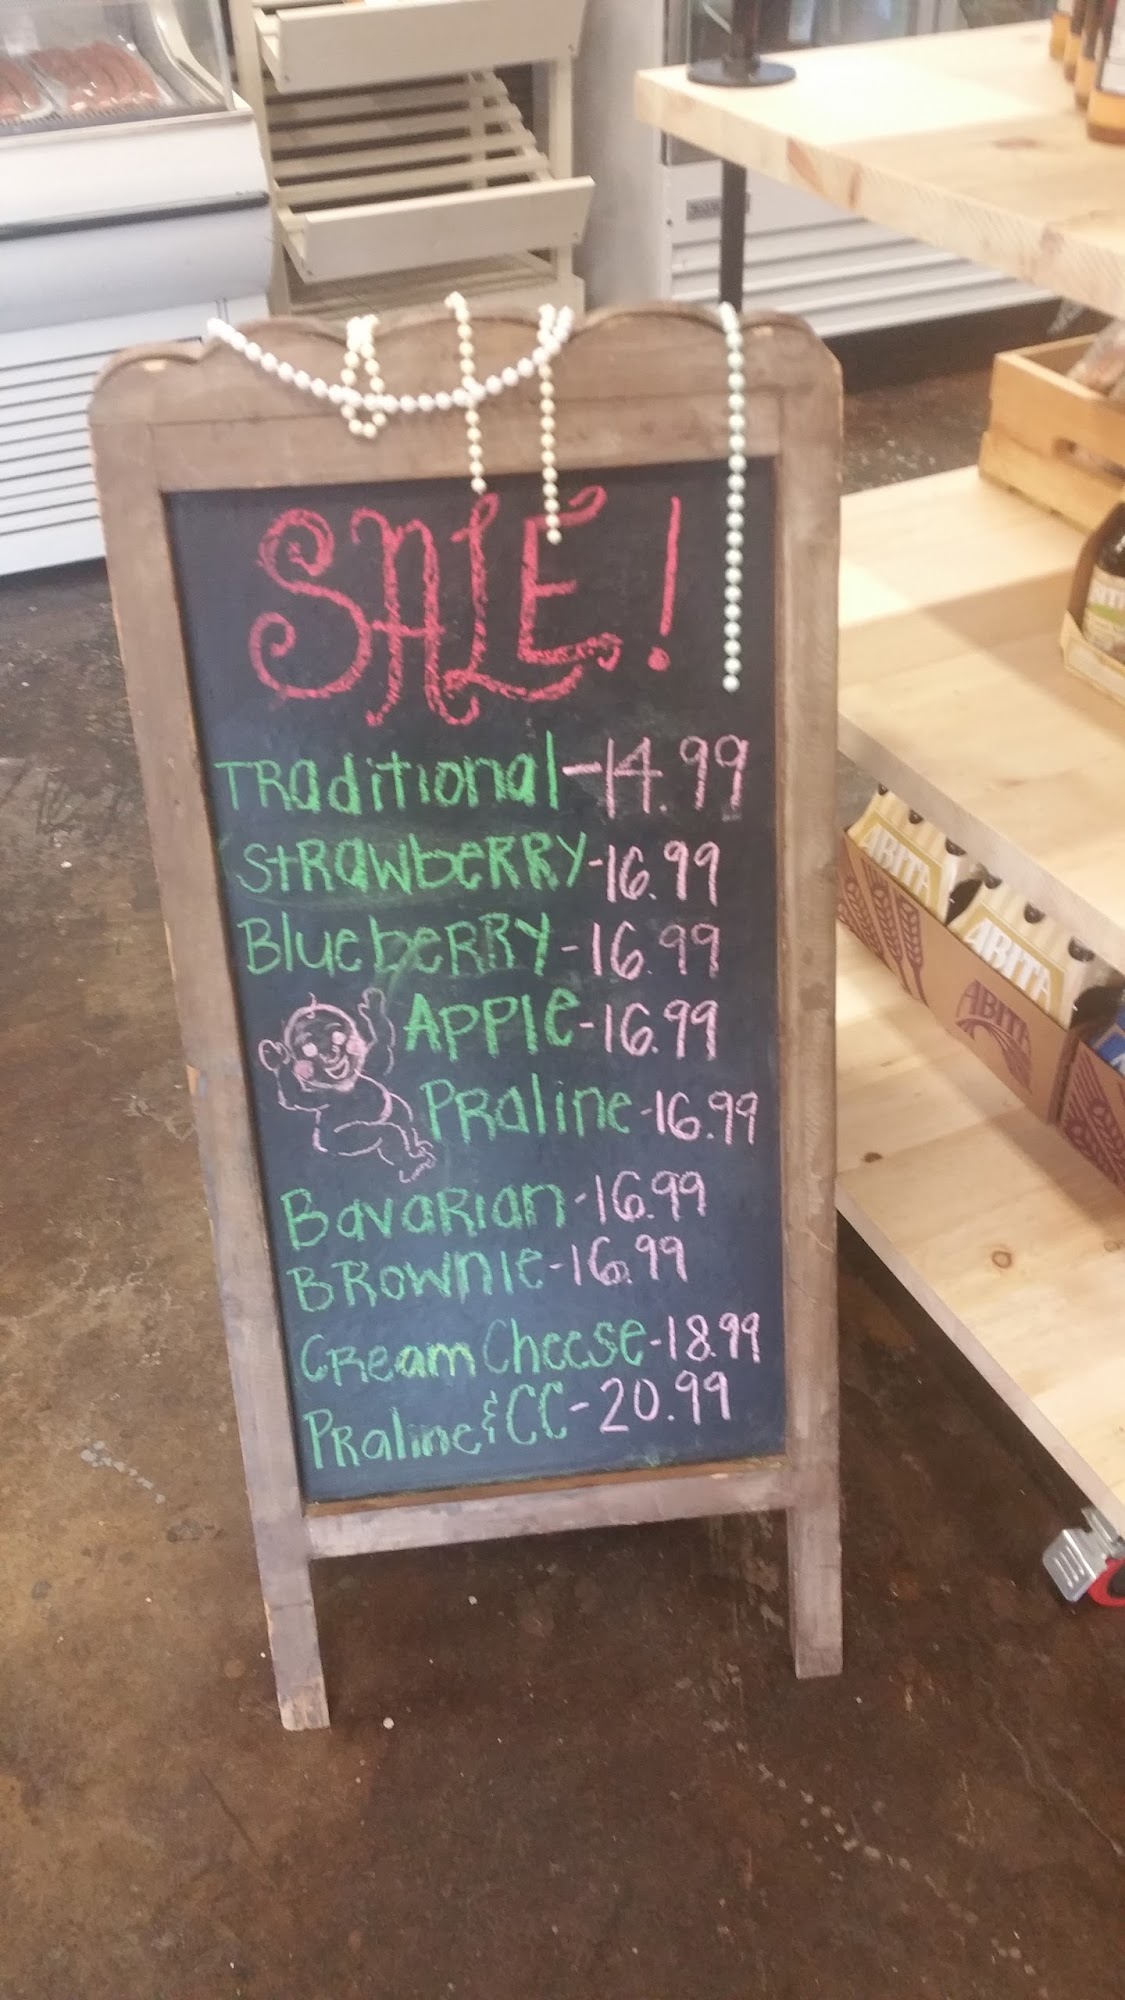 SALE!
TRaditional - 14.99
StRawbeRRY - 16.99
BluebeRRY - 16.99
APPlE - 16.99
PRaline - 16.99
BavaRian - 16.99
BROWNIE - 16.99
CReam Cheese - 18.99
PRaline & CC - 20.99
ABITA
ABITA
ABITA